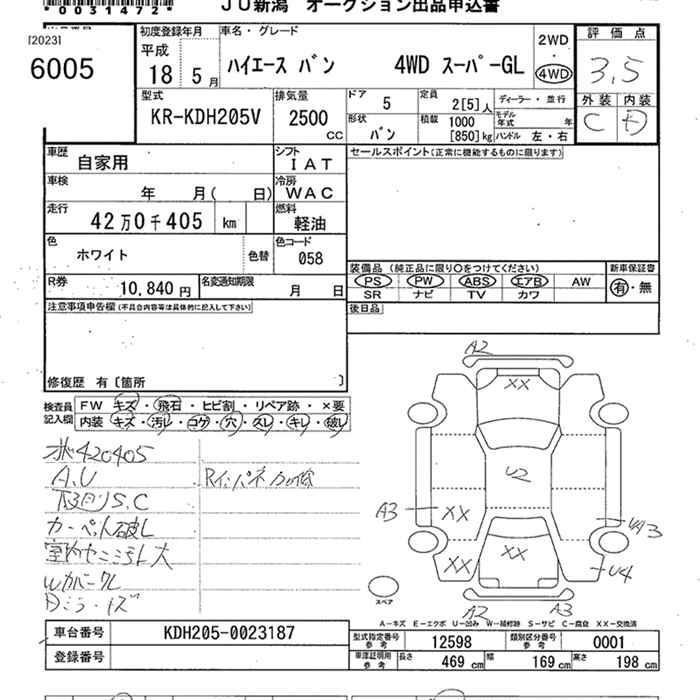 *0031472*
JU新潟 オークション出品申込書
[2023]
6005
初度登録年月
平成
18 5 月
車名・グレード
ハイエース バン 4WD スーパーGL
2WD
4WD
評価点
3,5
外装 内装
C D
型式
KR-KDH205V
排気量
2500
CC
ドア
5
定員
2[5]人
ディーラー・並行
形状
バン
積載
1000
[850]kg
モデル年式 年
ハンドル 左・右
車歴
自家用
シフト
IAT
セールスポイント(正常に機能するものに限ります)
車検
年 月( 日)
冷房
WAC
走行
42万0千405 km
燃料
軽油
色
ホワイト
色替
色コード
058
装備品 (純正品に限り○をつけてください)
新車保証書
PS PW ABS エアB AW
有・無
SR ナビ TV カワ
R券
10,840 円
名変通知期限
月 日
後日品
注意事項申告欄(不具合内容等は具体的に記入して下さい)
修復歴 有〔箇所 〕
検査員
記入欄
FW キズ・飛石・ヒビ割・リペア跡・×要
内装 キズ・汚レ・コゲ・穴・スレ・キレ・破レ
420405
A.U
RインパネカW修
下回りS.C
カーペット破レ
室内セニ汚レ大
Wカバークレ
Dミラーキズ
A2
XX
U2
A3
XX
XX
XX
UA3
U4
A2
A3
スペア
A-キズ E-エクボ U-凹み W-補修跡 S-サビ C-腐食 XX-交換済
車台番号
KDH205-0023187
型式指定番号
参考
12598
類別区分番号
参考
0001
登録番号
車庫証明用
参考
長さ
469 cm
幅
169 cm
高さ
198 cm